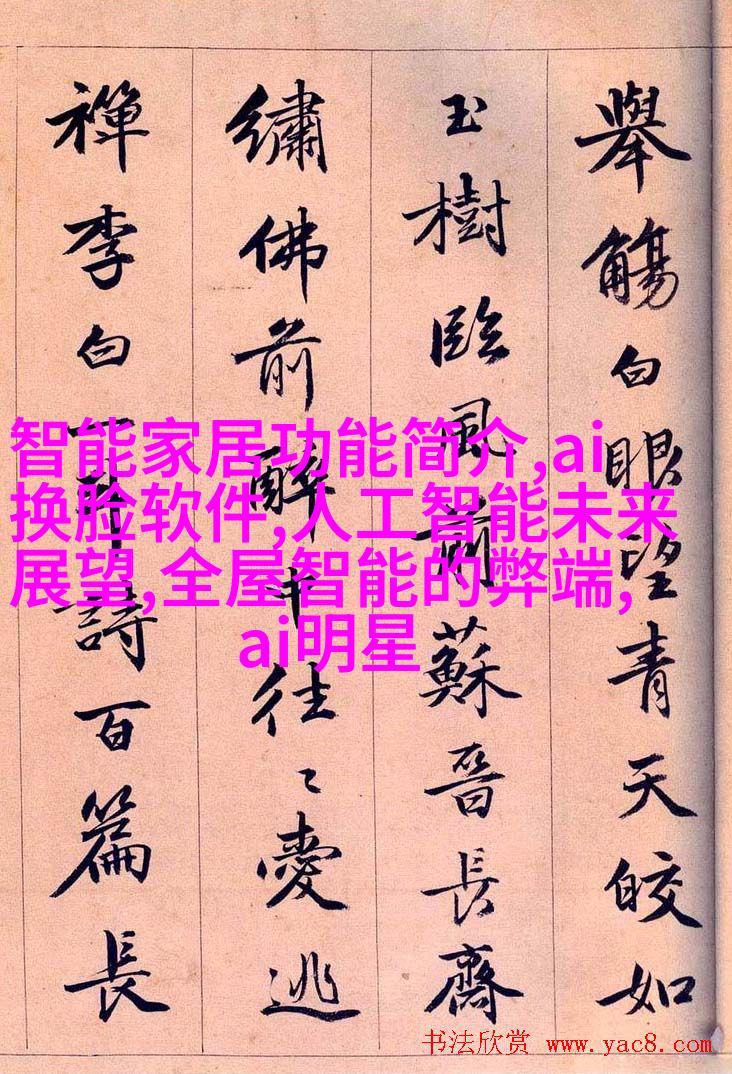 舉觴白眼望青天皎如
玉樹臨風前蘇晉長齋
繡佛前醉中往〻愛逃
禪李白一斗詩百篇長
智能家居功能简介,ai
换脸软件,人工智能未来
展望,全屋智能的弊端,
ai明星
书法欣赏 www.yac8.com